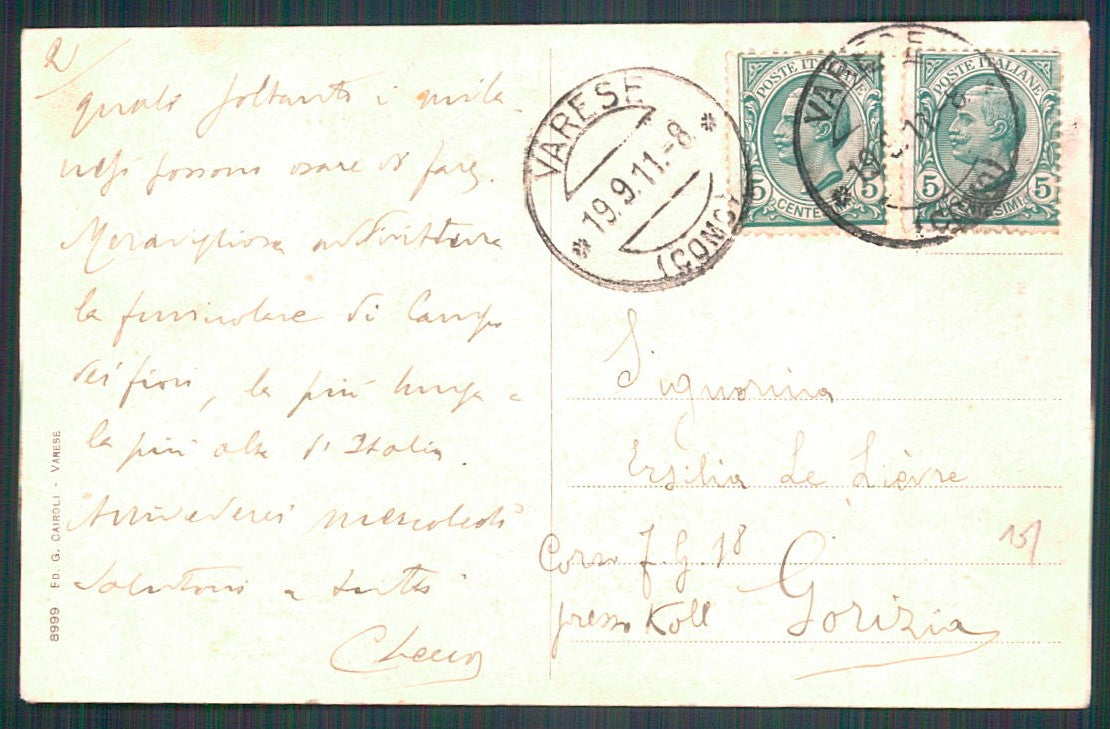 2/
quale soltanto i mila-
nesi possono osare di fare.
Meravigliosa addirittura
la funicolare di Campo
dei fiori, la più lunga e
la più alta d'Italia.
Arrivederci mercoledì
Saluti a tutti
Checco
8999 ED. G. CAIROLI - VARESE
VARESE
19.9.11.-8
(COMO)
POSTE ITALIANE
5 CENTESIMI 5
POSTE ITALIANE
5 CENTESIMI 5
VARESE
19.9.11.-8
(COMO)
Signorina
Ersilia Le Lièvre
Corso F. G. 18
presso Koll Gorizia
15/